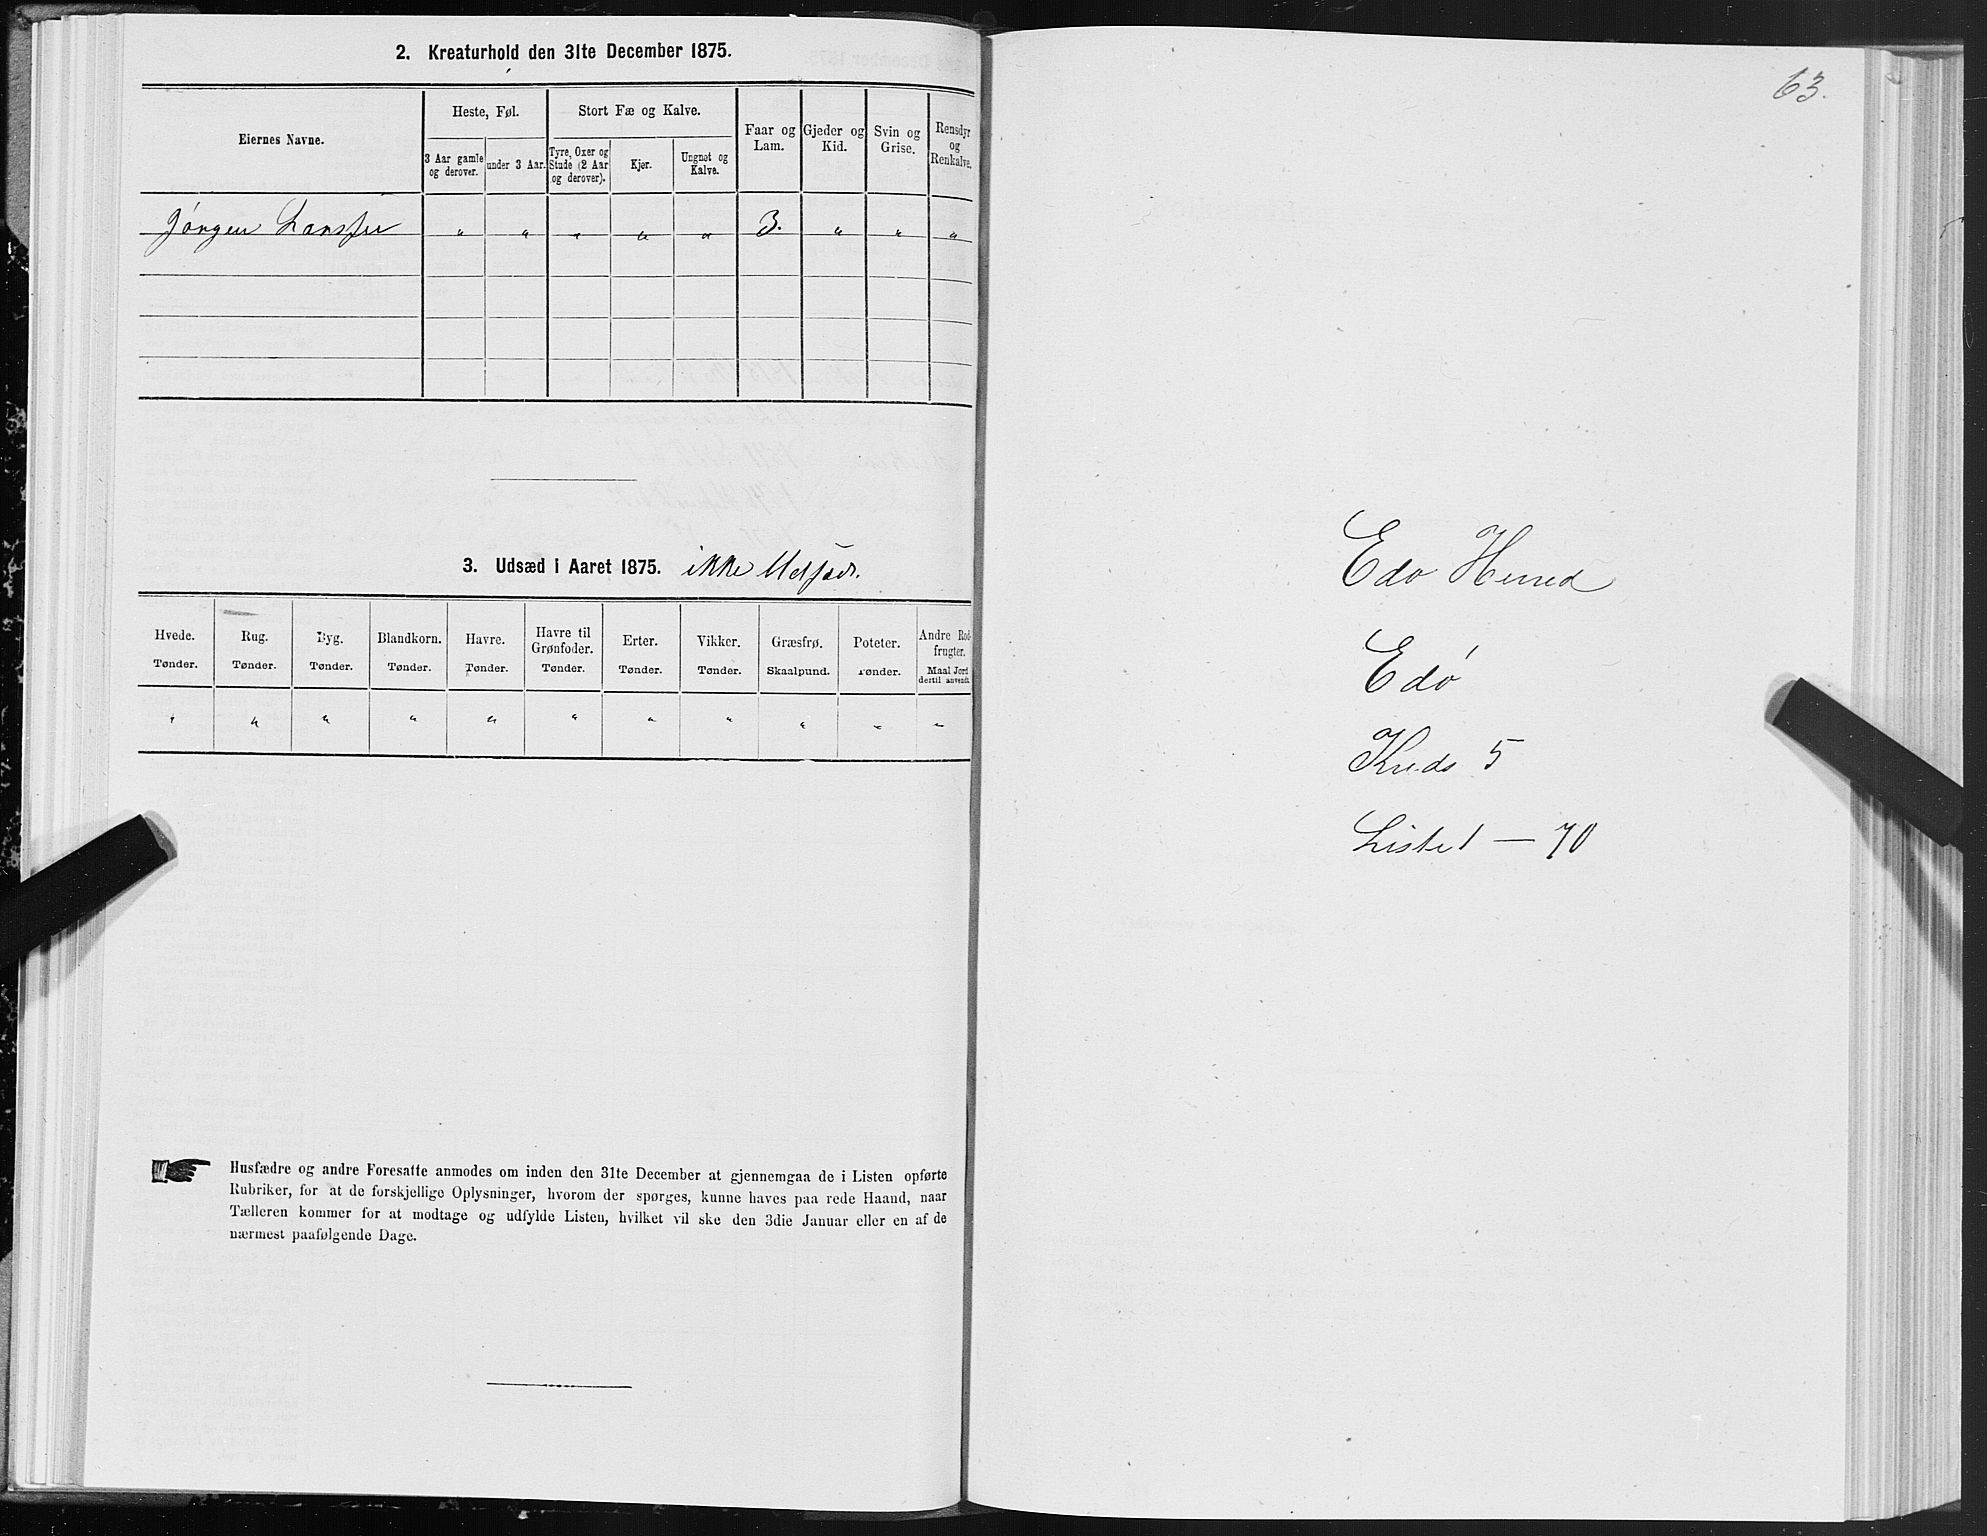 2. Kreaturhold den 31te December 1875.
Eiernes Navne.
Heste, Føl.
Stort Fæ og Kalve.
Faar og Lam.
Gjeder og Kid.
Svin og Grise.
Rensdyr og Renkalve.
3 Aar gamle og derover.
under 3 Aar.
Tyre, Oxer og Stude (2 Aar og derover).
Kjør.
Ungnøt og Kalve.
Jørgen Larssen " " " " " 3. " " "
3. Udsæd i Aaret 1875. ikke Udsæd.
Hvede. Rug. Byg. Blandkorn. Havre. Havre til Grønfoder. Erter. Vikker. Græsfrø. Poteter. Andre Rodfrugter.
Tønder. Tønder. Tønder. Tønder. Tønder. Tønder. Tønder. Tønder. Skaalpund. Tønder. Maal Jord dertil anvendt.
" " " " " " " " " " "
Husfædre og andre Foresatte anmodes om inden den 31te December at gjennemgaa de i Listen opførte
Rubriker, for at de forskjellige Oplysninger, hvorom der spørges, kunne haves paa rede Haand, naar
Tælleren kommer for at modtage og udfylde Listen, hvilket vil ske den 3die Januar eller en af de
nærmest paafølgende Dage.
63.
Edø Herred
Edø
Kreds 5
Liste 1 — 70